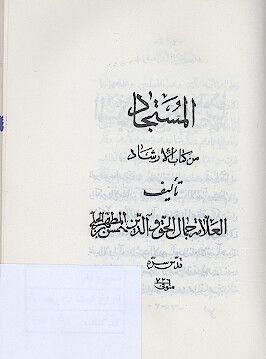 المستجاد
من كتاب الإرشاد
تأليف
العلامة جمال الحق والدين الحسن بن المطهر الحلي
قدس سره
متوفى ٧٢٦